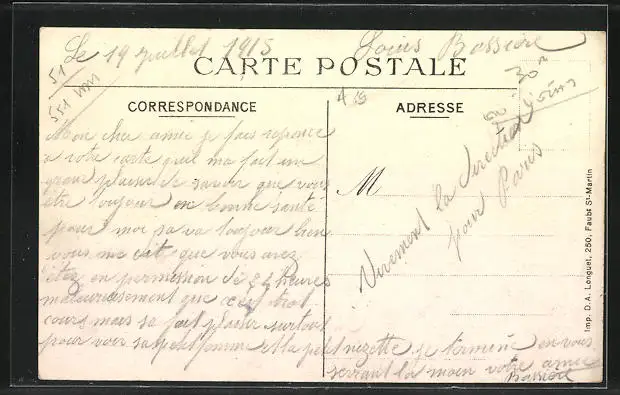 Le 19 juillet 1915 Louis Bossière
CARTE POSTALE
CORRESPONDANCE
ADRESSE
M
Mon cher amie je fais reponce
a votre carte quel ma fait un
grour plaisir de savoir que vous
etre toujour en bonne santé
pour moi sa va toujour bien
vous me dit que vous avez
etez en permission de 24 heures
maleureusement que cest bien
cours mais sa fait plaisir surtout
pour voir sa petit femme et la petit nizette je termine en vous
serrant la main votre amie
Bossiere
Vivement la direction
pour Paris
Imp. D.A. Longuet, 250, Faubg St-Martin